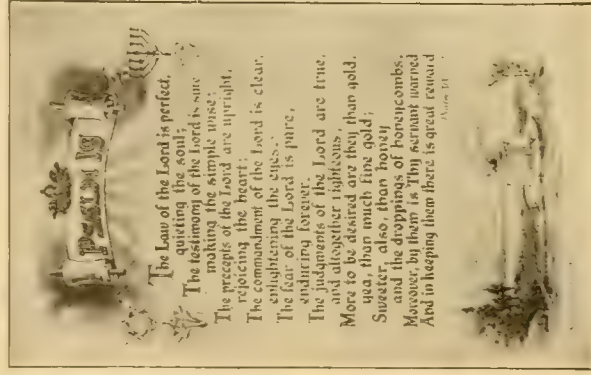 PSALM 19
The Law of the Lord is perfect,
quieting the soul;
The testimony of the Lord is sure
making the simple wise;
The precepts of the Lord are upright,
rejoicing the heart;
The commandment of the Lord is clear,
enlightening the eyes.
The fear of the Lord is pure,
enduring forever.
The judgments of the Lord are true,
and altogether righteous,
More to be desired are they than gold,
yea, than much fine gold;
Sweeter, also, than honey
and the droppings of honeycombs;
Moreover, by them is Thy servant warned
And in keeping them there is great reward